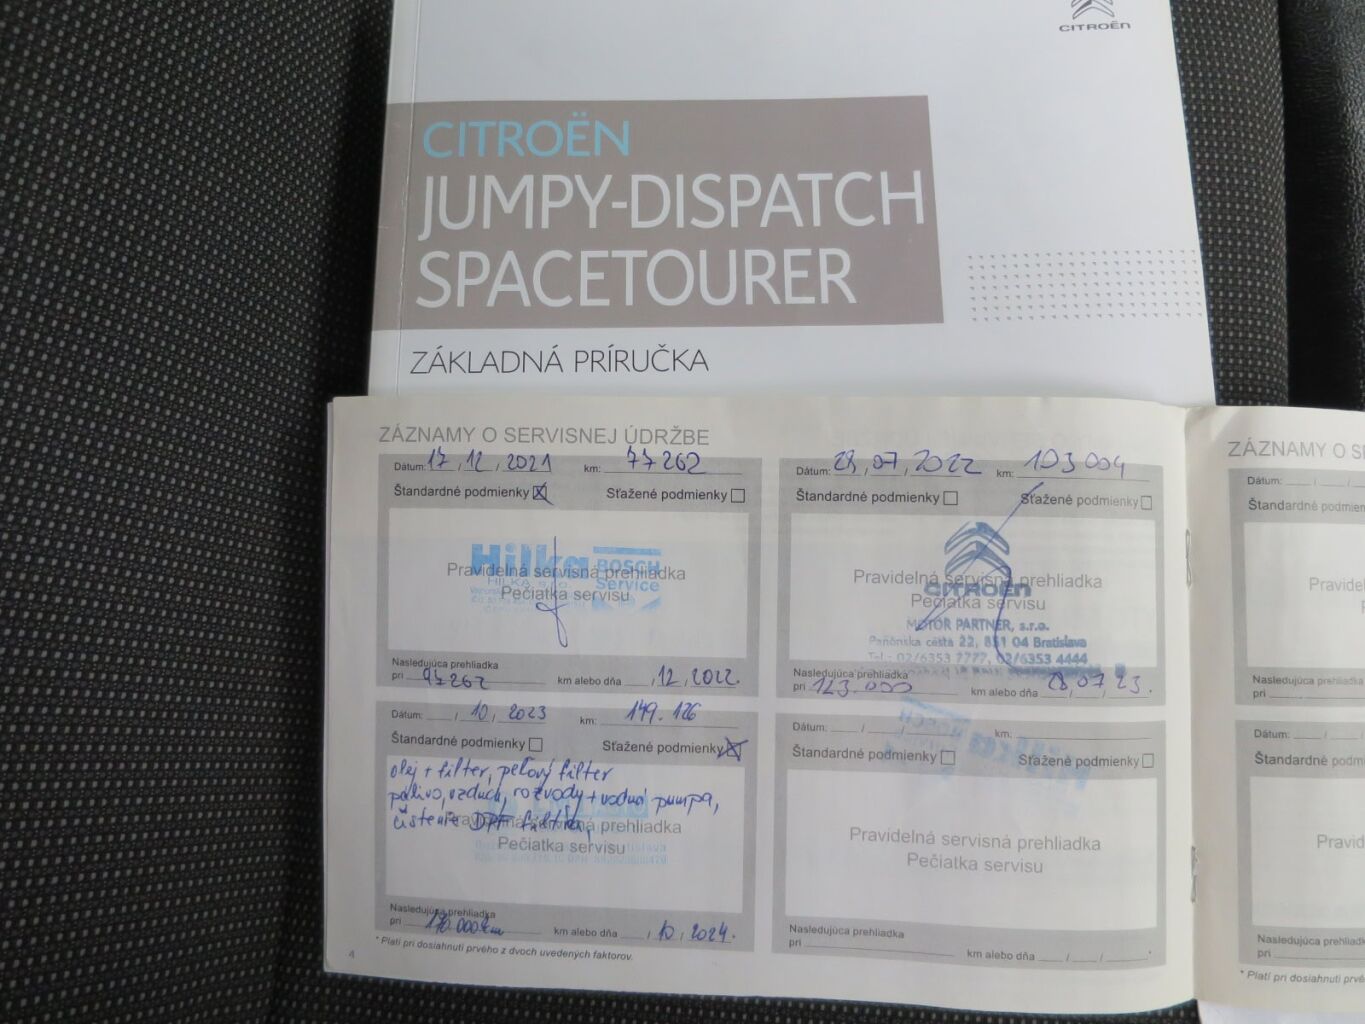 CITROËN
CITROËN
JUMPY-DISPATCH
SPACETOURER
ZÁKLADNÁ PRÍRUČKA
ZÁZNAMY O SERVISNEJ ÚDRŽBE
Dátum: 17, 12, 2021 km: 77 262
Štandardné podmienky Sťažené podmienky
Hilka BOSCH Service
HILKA, s.r.o.
Pravidelná servisná prehliadka
Pečiatka servisu
Nasledujúca prehliadka
pri 97262 km alebo dňa , 12, 2022.
Dátum: 28, 07, 2022 km: 103 004
Štandardné podmienky Sťažené podmienky
Pravidelná servisná prehliadka
CITROËN
Pečiatka servisu
MOTOR PARTNER, s.r.o.
Panónska cesta 22, 851 04 Bratislava
Tel.: 02/6353 7777, 02/6353 4444
Nasledujúca prehliadka
pri 123.000 km alebo dňa 28, 07, 23.
Dátum: / 10, 2023 km: 149.126
Štandardné podmienky Sťažené podmienky
olej + filter, peľový filter
palivo, vzduch, rozvody + vodná pumpa,
čistenie DPF filtra,
Pravidelná servisná prehliadka
Pečiatka servisu
Nasledujúca prehliadka
pri 170.000km km alebo dňa , 10, 2024.
Dátum: / / km:
Štandardné podmienky Sťažené podmienky
Hilka BOSCH
Pravidelná servisná prehliadka
Pečiatka servisu
Nasledujúca prehliadka
pri km alebo dňa / / .*
* Platí pri dosiahnutí prvého z dvoch uvedených faktorov.
4
ZÁZNAMY O SE
Dátum: / /
Štandardné podmien
Pravideln
P
Nasledujúca prehliadka
pri
Dátum: / /
Štandardné podm
Pravid
Nasledujúca prehliadka
pri
* Platí pri dosiahnutí prvé